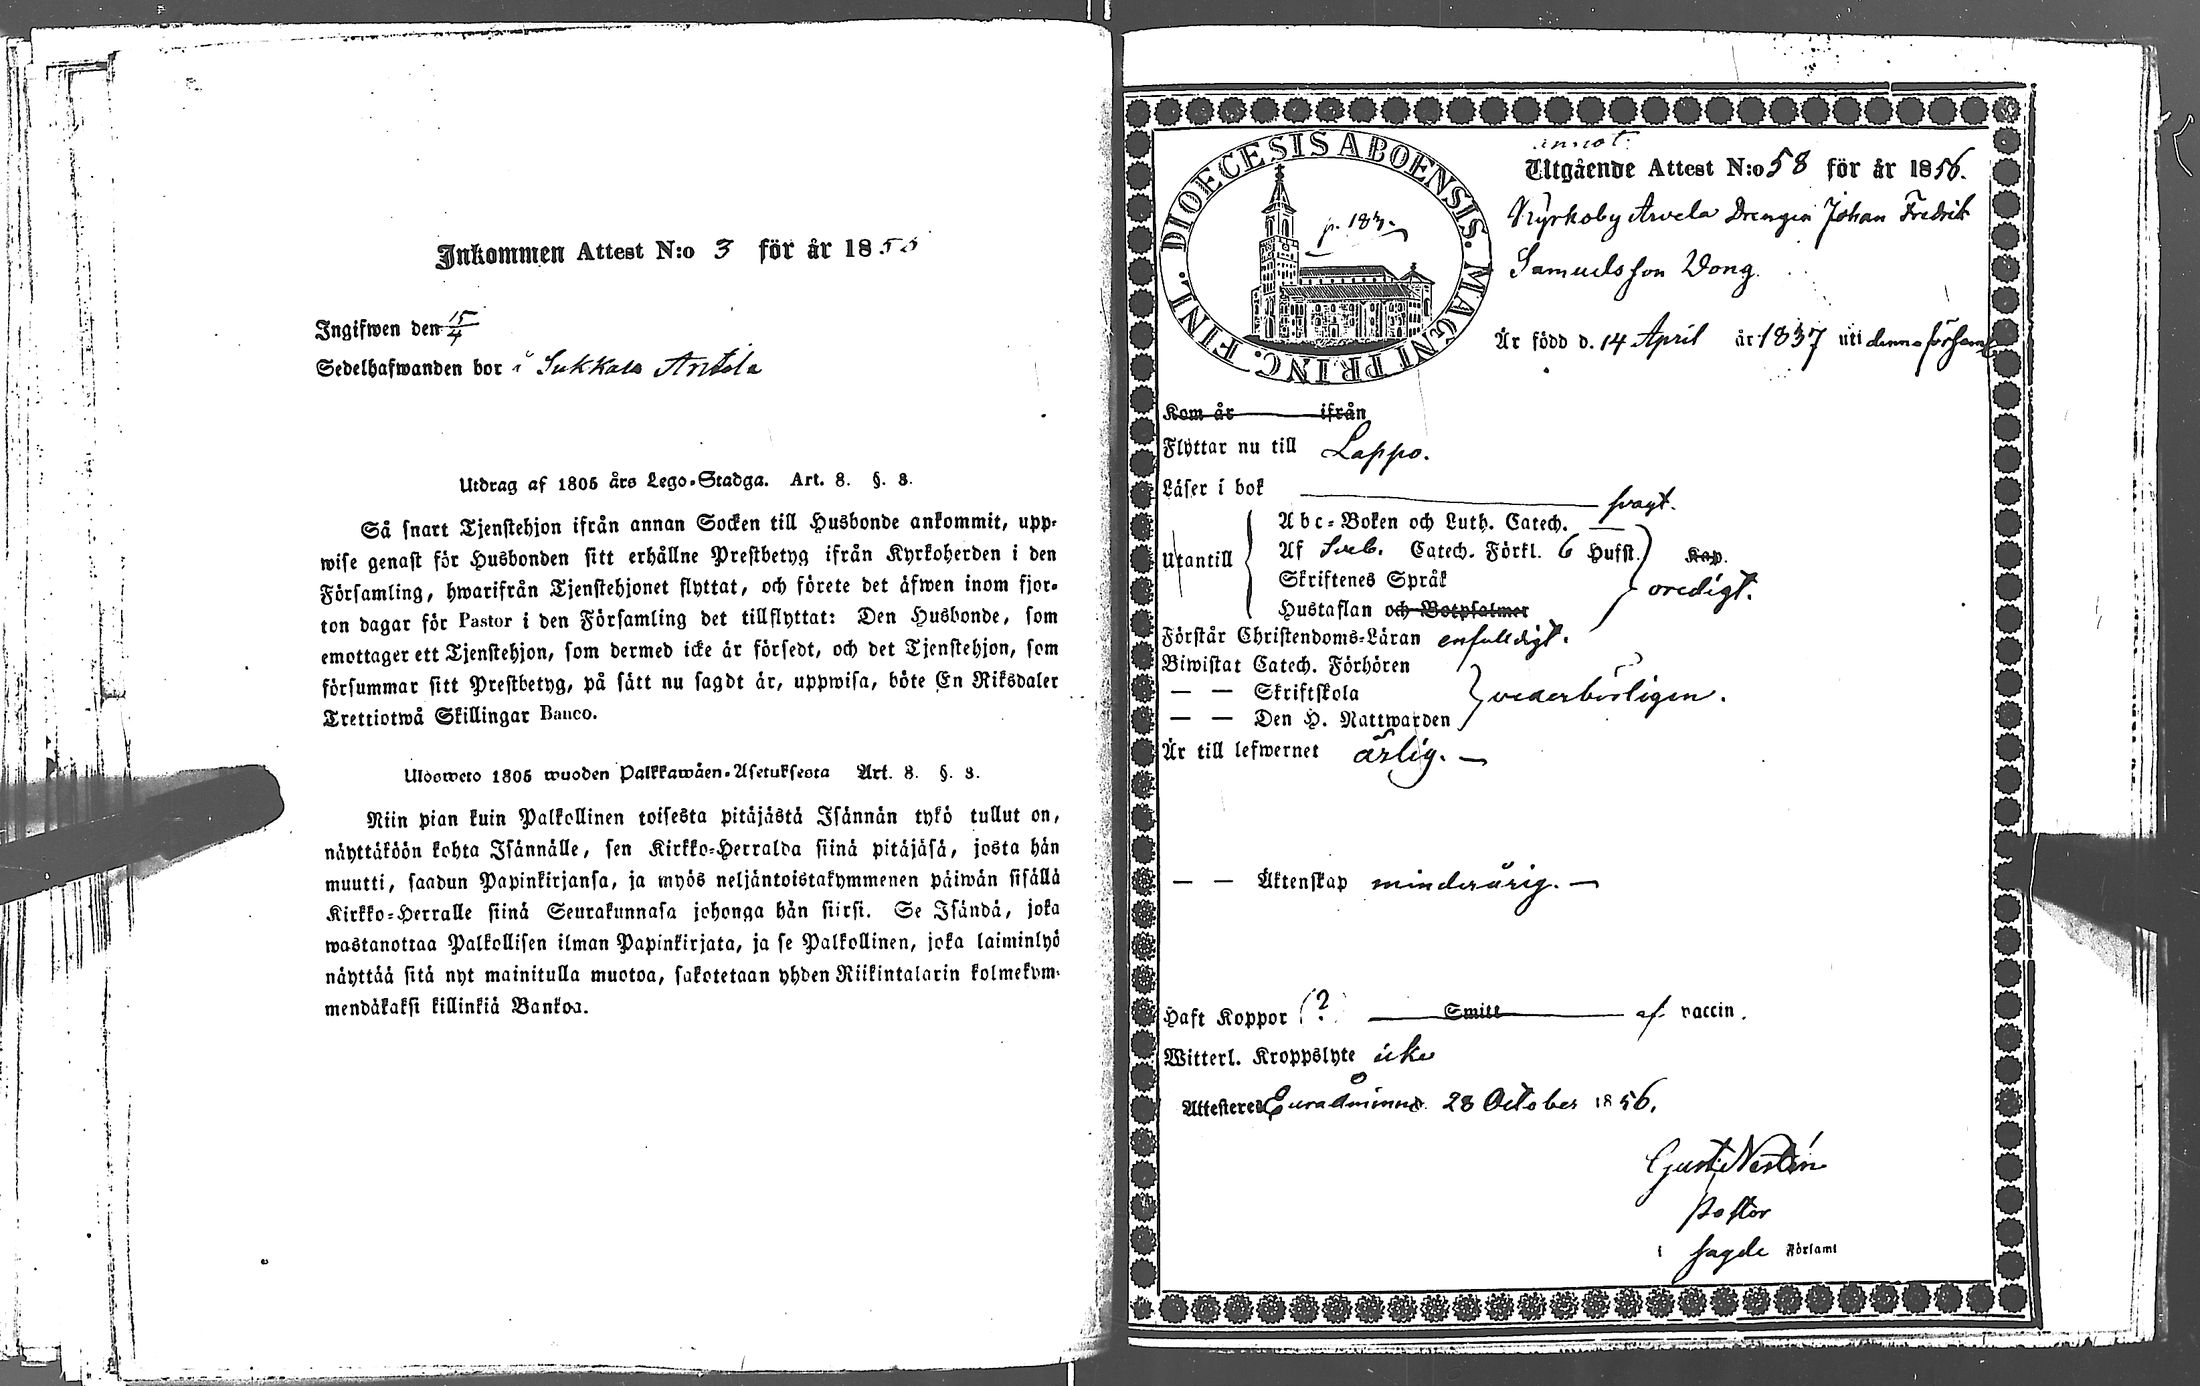 Inkommen Attest N:o 3 för år 1855
Ingifwen den 15/4
Sedelhafwanden bor i Sukkala Anttila
Utdrag af 1805 års Lego-Stadga. Art. 8. §. 8.
Så snart Tjenstehjon ifrån annan Socken till Husbonde ankommit, upp-
wise genast för Husbonden sitt erhållne Prestbetyg ifrån Kyrkoherden i den
Församling, hwarifrån Tjenstehjonet flyttat, och förete det äfwen inom fjor-
ton dagar för Pastor i den Församling det tillflyttat: Den Husbonde, som
emottager ett Tjenstehjon, som dermed icke är försedt, och det Tjenstehjon, som
försummar sitt Prestbetyg, på sätt nu sagdt är, uppwisa, böte En Riksdaler
Trettiotwå Skillingar Banco.
Ulosweto 1805 wuoden Palkkawäen-Asetuksesta Art. 8. §. 8.
Niin pian kuin Palkollinen toisesta pitäjästä Isännän tykö tullut on,
näyttäköön kohta Isännälle, sen Kirkko-Herralda siinä pitäjäsä, josta hän
muutti, saadun Papinkirjansa, ja myös neljäntoistakymmenen päiwän sisällä
Kirkko-Herralle siinä Seurakunnasa johonga hän siirsi. Se Isändä, joka
wastanottaa Palkollisen ilman Papinkirjata, ja se Palkollinen, joka laiminlyö
näyttää sitä nyt mainitulla muotoa, sakotetaan yhden Riikintalarin kolmekym-
mendäkaksi killinkiä Bankoa.
DIOECESIS ABOENSIS. MAGNI PRINC. FINL.
p. 183.
annot.
Utgående Attest N:o 58 för år 1856.
Kyrkoby Arvela Drengen Johan Fredrik
Samuelsson Wong.
Är född d. 14 April år 1837 uti denna församl
Kom år ifrån
Flyttar nu till Lappo.
Läser i bok svagt.
Abc-Boken och Luth. Catech.
Utantill
Af Sveb. Catech. Förkl. 6 Hufst. Kap.
Skriftenes Språk
oredigt.
Hustaflan och Botpsalmer
Förstår Christendoms-Läran enfalldigt.
Biwistat Catech. Förhören
— — Skriftskola
vederbörligen.
— — Den H. Nattwarden
Är till lefwernet ärlig. —
— — Äktenskap minderårig. —
Haft Koppor (?) Smitt af vaccin.
Witterl. Kroppslyte icke
Attesteres Euraåminne 28 October 1856.
Gust. Nestén
Pastor
i sagde Församl